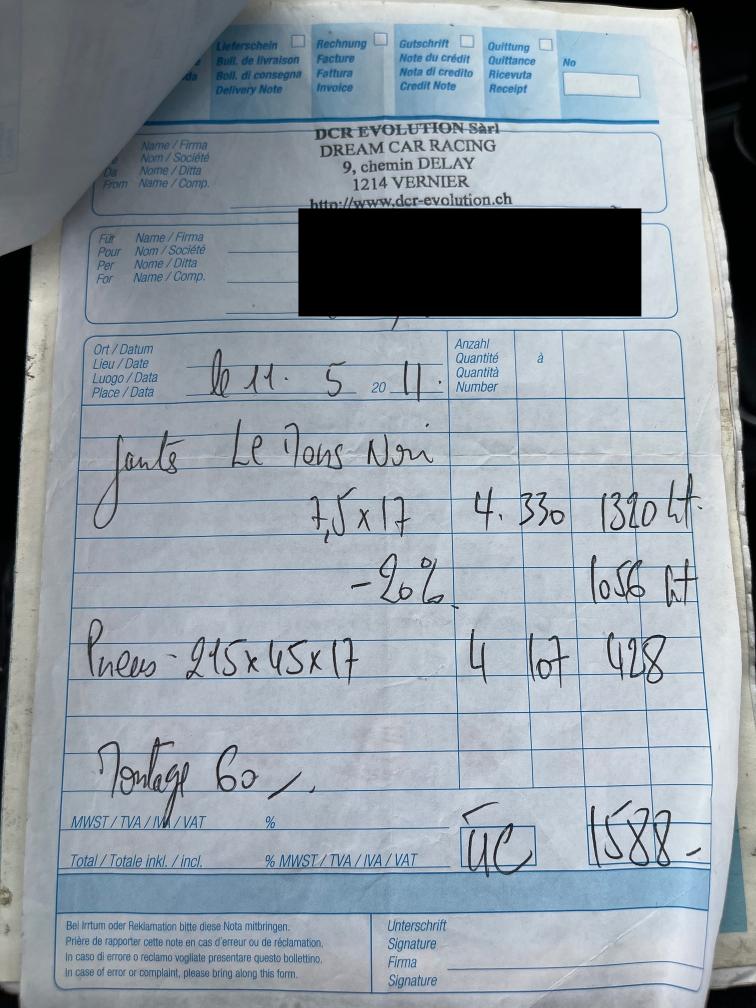 Lieferschein Rechnung Gutschrift Quittung
Bull. de livraison Facture Note du crédit Quittance No
da Boll. di consegna Fattura Nota di credito Ricevuta
Delivery Note Invoice Credit Note Receipt
DCR EVOLUTION Sàrl
DREAM CAR RACING
9, chemin DELAY
1214 VERNIER
http://www.dcr-evolution.ch
Name / Firma
Nom / Société
Da Nome / Ditta
From Name / Comp.
Für Name / Firma
Pour Nom / Société
Per Nome / Ditta
For Name / Comp.
Ort / Datum
Lieu / Date
Luogo / Data
Place / Data
le 11. 5 20 11.
Anzahl
Quantité à
Quantità
Number
Jantes Le Mans
7,5 x 17 4. 330 1320 ht.
-20% 1056 ht
Pneus - 215 x 45 x 17 4 107 428
Montage 60
MWST / TVA / IVA / VAT %
Total / Totale inkl. / incl. % MWST / TVA / IVA / VAT 1588.-
Bei Irrtum oder Reklamation bitte diese Nota mitbringen.
Prière de rapporter cette note en cas d'erreur ou de réclamation.
In caso di errore o reclamo vogliate presentare questo bollettino.
In case of error or complaint, please bring along this form.
Unterschrift
Signature
Firma
Signature